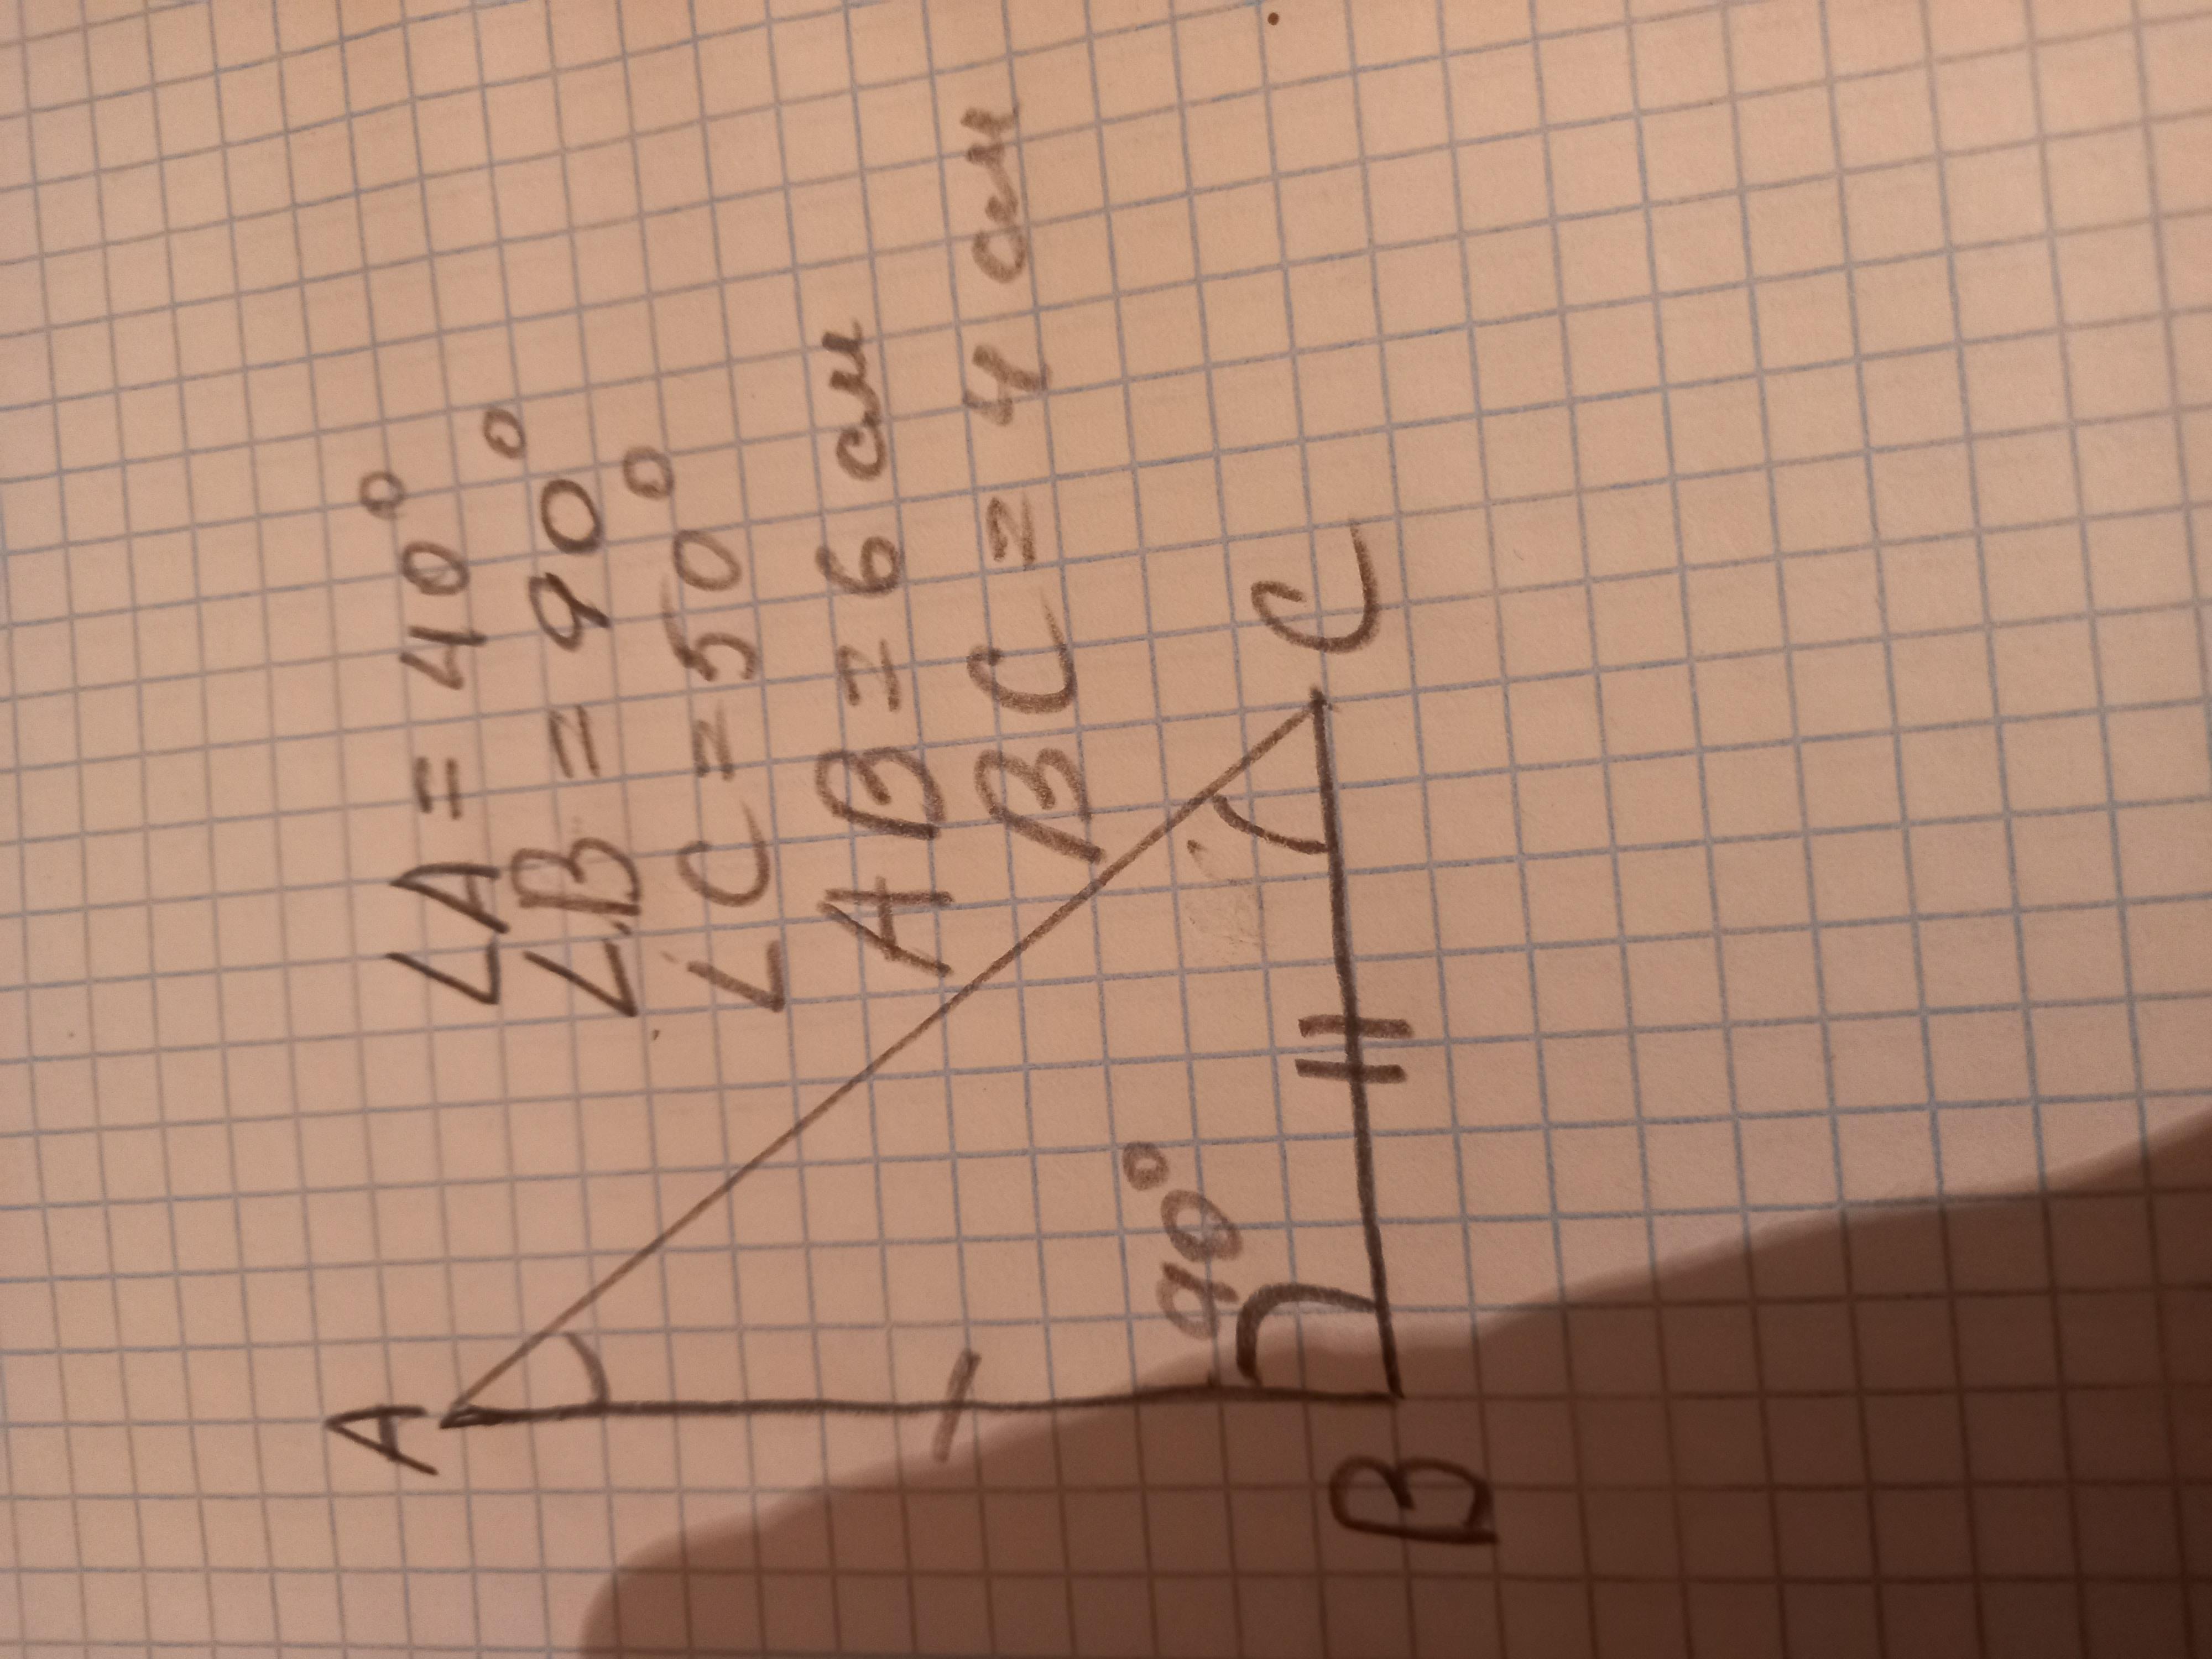 ∠A = 40°
∠B = 90°
∠C = 50°
AB = 6 см
BC = 4 см
A
90°
B
C